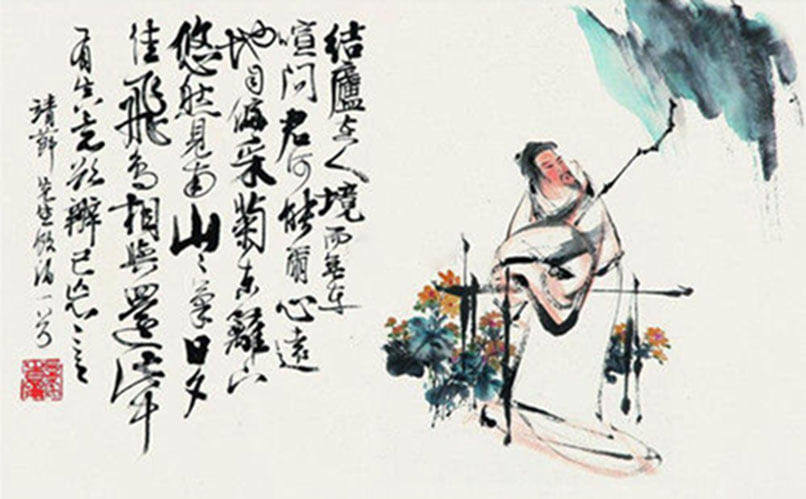 結廬在人境而無車
喧問君何能爾心遠
地自偏采菊東籬下
悠然見南山〻氣日夕
佳飛鳥相與還此中
有真意欲辨已忘言
靖節先生飲酒一首